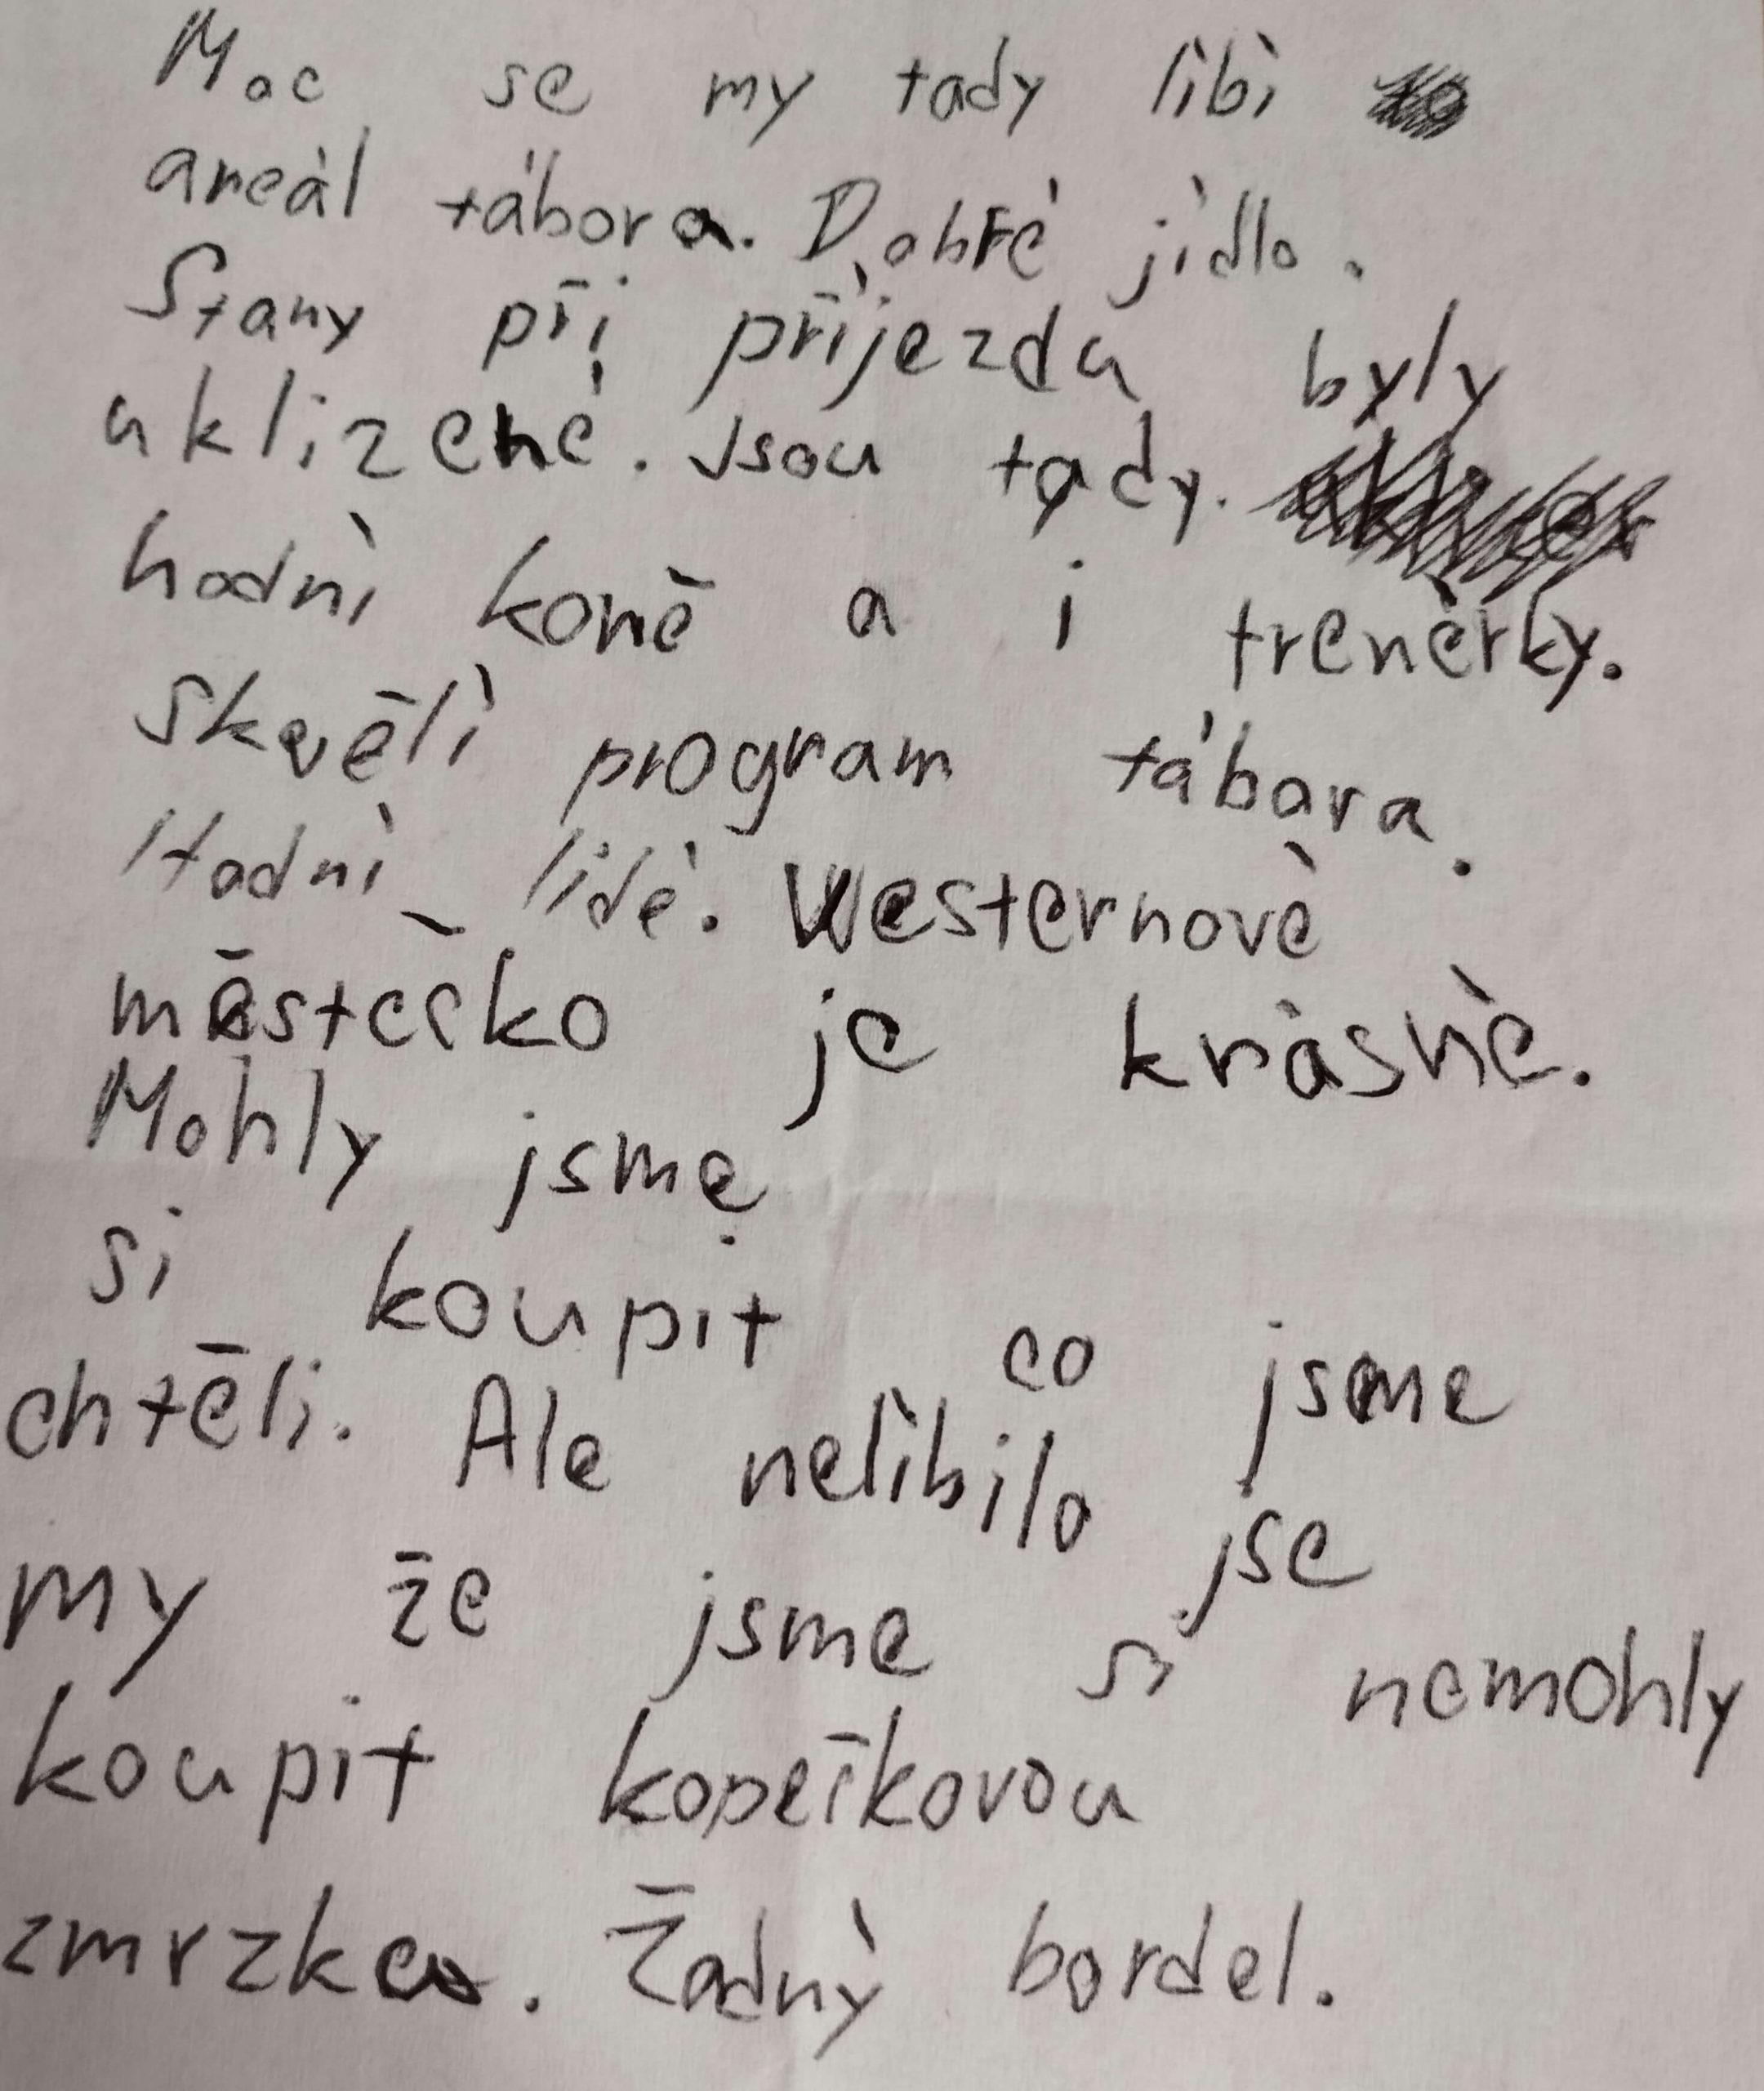 Moc se my tady líbí
areál tábora. Dobré jídlo.
Stany při příjezdu byly
uklizené. Jsou tady.
hodní koně a i trenérky.
Skvělí program tábora.
Hodní lidé. Westernové
městečko je krásné.
Mohly jsme
si koupit co jsme
chtěli. Ale nelíbilo jse
my že jsme si nemohly
koupit kopečkovou
Žádný bordel.